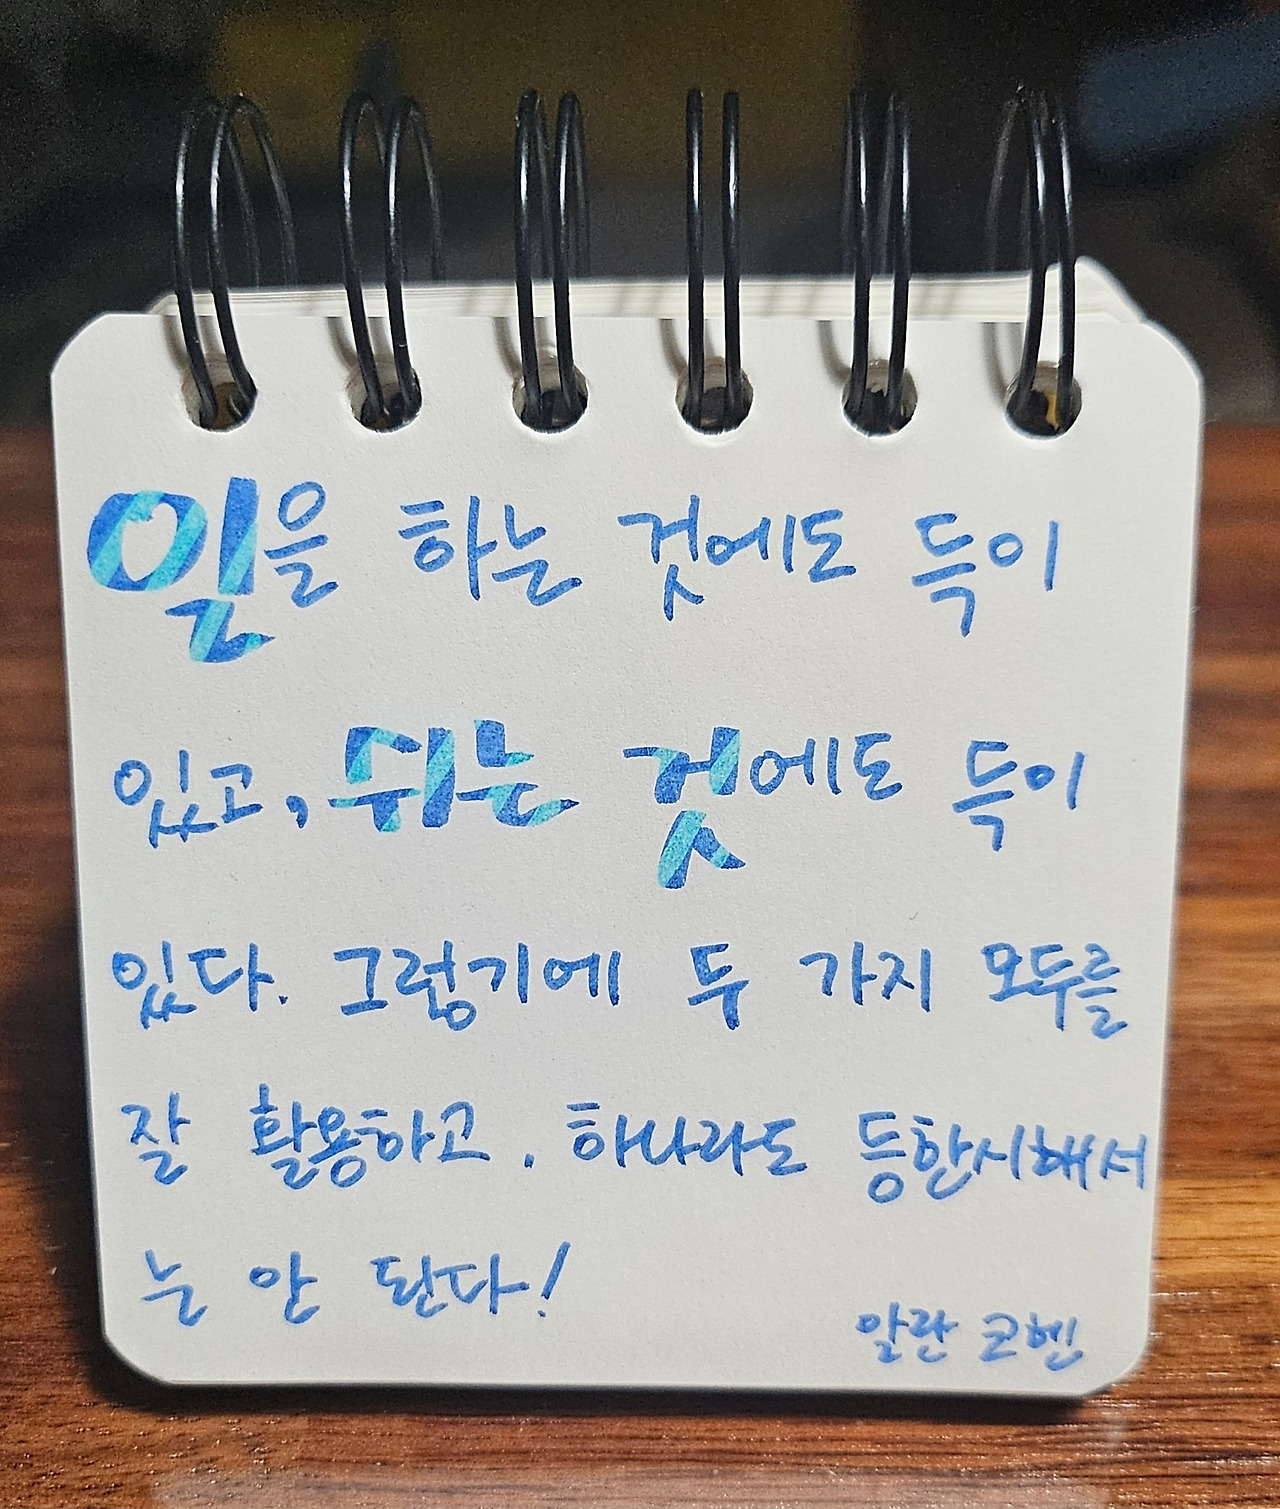 일을 하는 것에도 득이
있고, 쉬는 것에도 득이
있다. 그렇기에 두 가지 모두를
잘 활용하고, 하나라도 등한시해서
는 안 된다!
알란 코헨